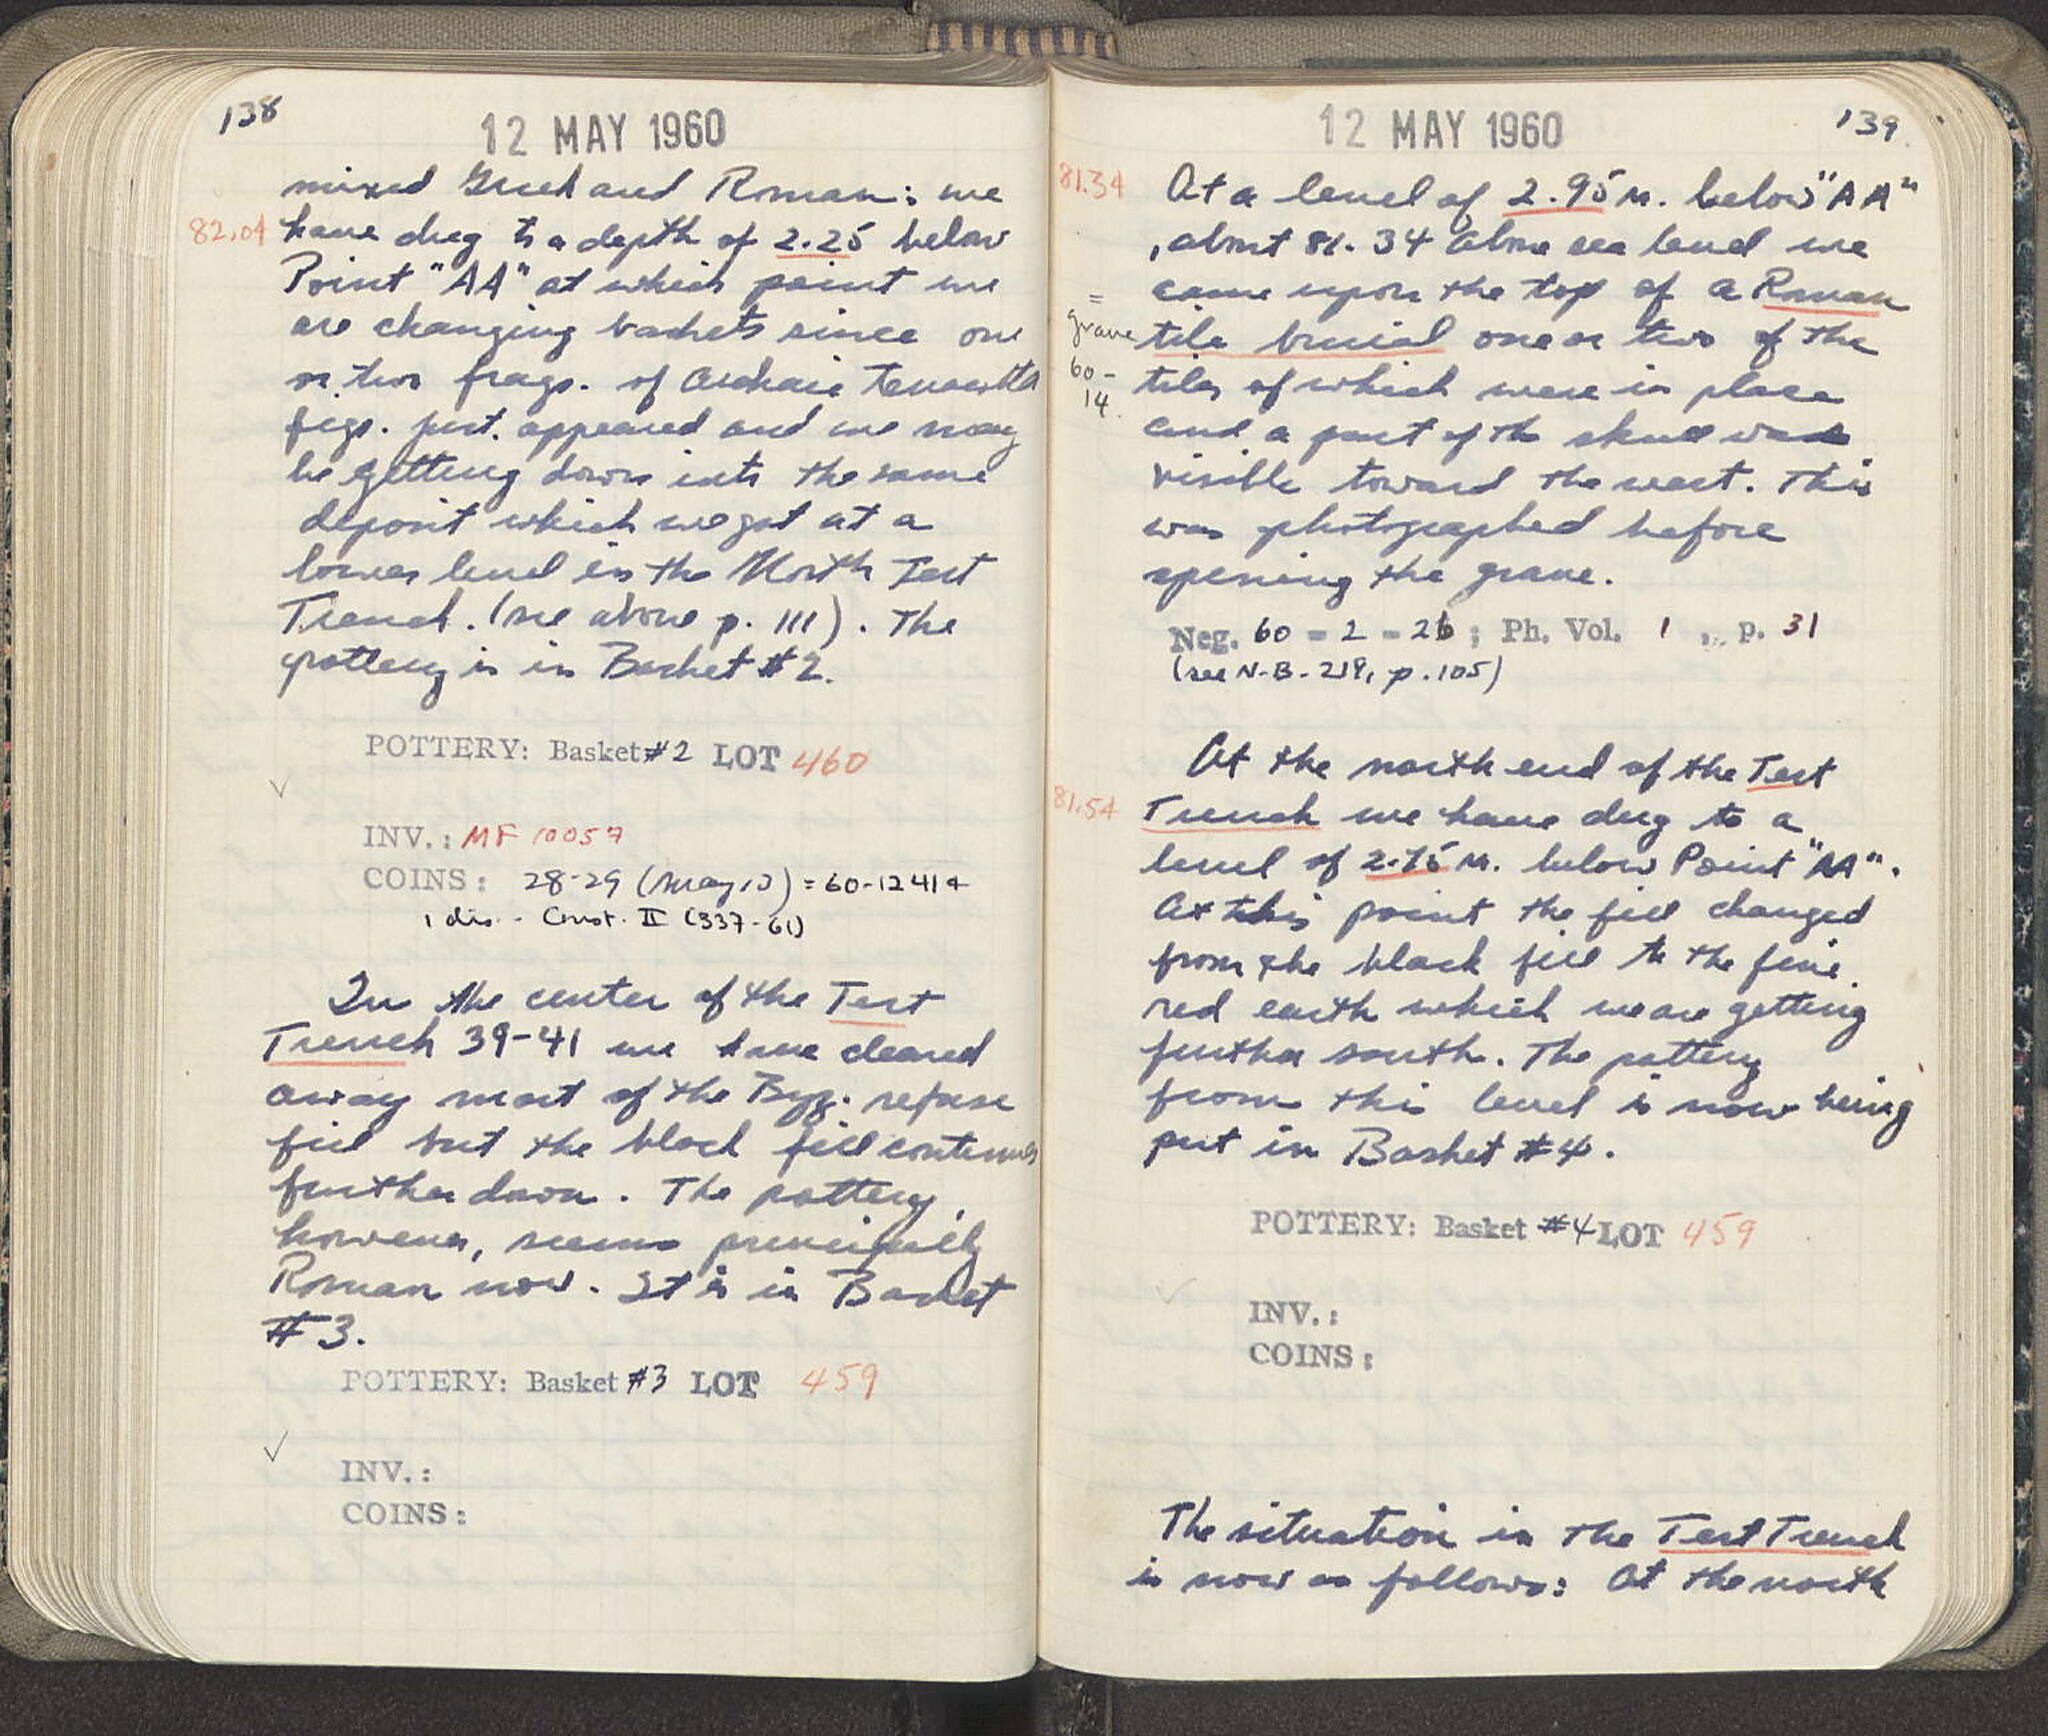 138
12 MAY 1960
mixed Greek and Roman; we
82.04 have dug to a depth of 2.25 below
Point "AA" at which point we
are changing baskets since one
or two frags. of Archaic Terracotta
figs. just appeared and we may
be getting down into the same
deposit which we got at a
lower level in the North Test
Trench. (see above p. 111). The
pottery is in Basket #2.
POTTERY: Basket #2 LOT 460
✓
INV.: MF 10057
COINS: 28-29 (May 12) = 60-1241 +
1 dis. - Const. II (337-61)
In the center of the Test
Trench 39-41 we have cleared
away most of the Byz. refuse
fill but the black fill continues
further down. The pottery,
however, seems principally
Roman now. It is in Basket
#3.
POTTERY: Basket #3 LOT 459
✓
INV.:
COINS:
12 MAY 1960
139
81.34 At a level of 2.95 M. below "AA"
, about 81.34 above sea level we
came upon the top of a Roman
= grave 60-14.
tile burial one or two of the
tiles of which were in place
and a part of the skull was
visible toward the west. This
was photographed before
opening the grave.
Neg. 60 - 2 - 26 ; Ph. Vol. 1 , p. 31
(see N.B. 219, p. 105)
At the north end of the Test
81.54 Trench we have dug to a
level of 2.75 M. below Point "AA".
At this point the fill changed
from the black fill to the fine
red earth which we are getting
further south. The pottery
from this level is now being
put in Basket #4.
POTTERY: Basket #4 LOT 459
✓
INV.:
COINS:
The situation in the Test Trench
is now as follows: At the north